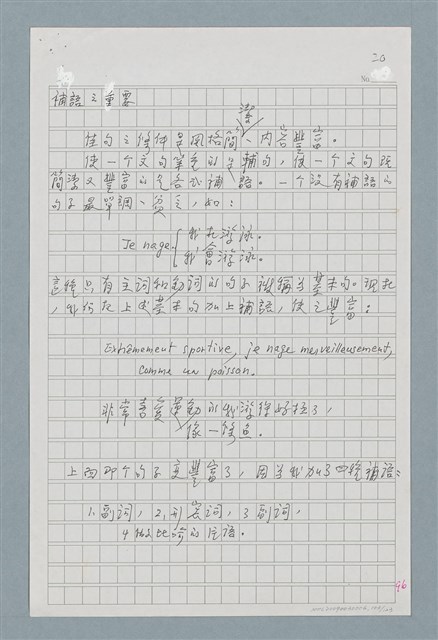 20
No.
補語之重要
潔
佳句之條件是風格簡、內容豐富。
使一個文句
簡潔又豐富的是各式補語。一個沒有補語的
句子最單調、貧乏,如:
Je nage. 我在游泳。
我會游泳。
這種只有主詞和動詞的句子被稱為基本句。現在
,我們在上述基本句加上補語,使之豐富:
Extrêmement sportive, je nage merveilleusement,
comme un poisson.
非常喜愛運動的我游得好極了,
像一條魚。
上面那個句子變豐富了,因為我加了四種補語:
1.副詞,2.形容詞,3副詞,
4做比喻的片語。
96